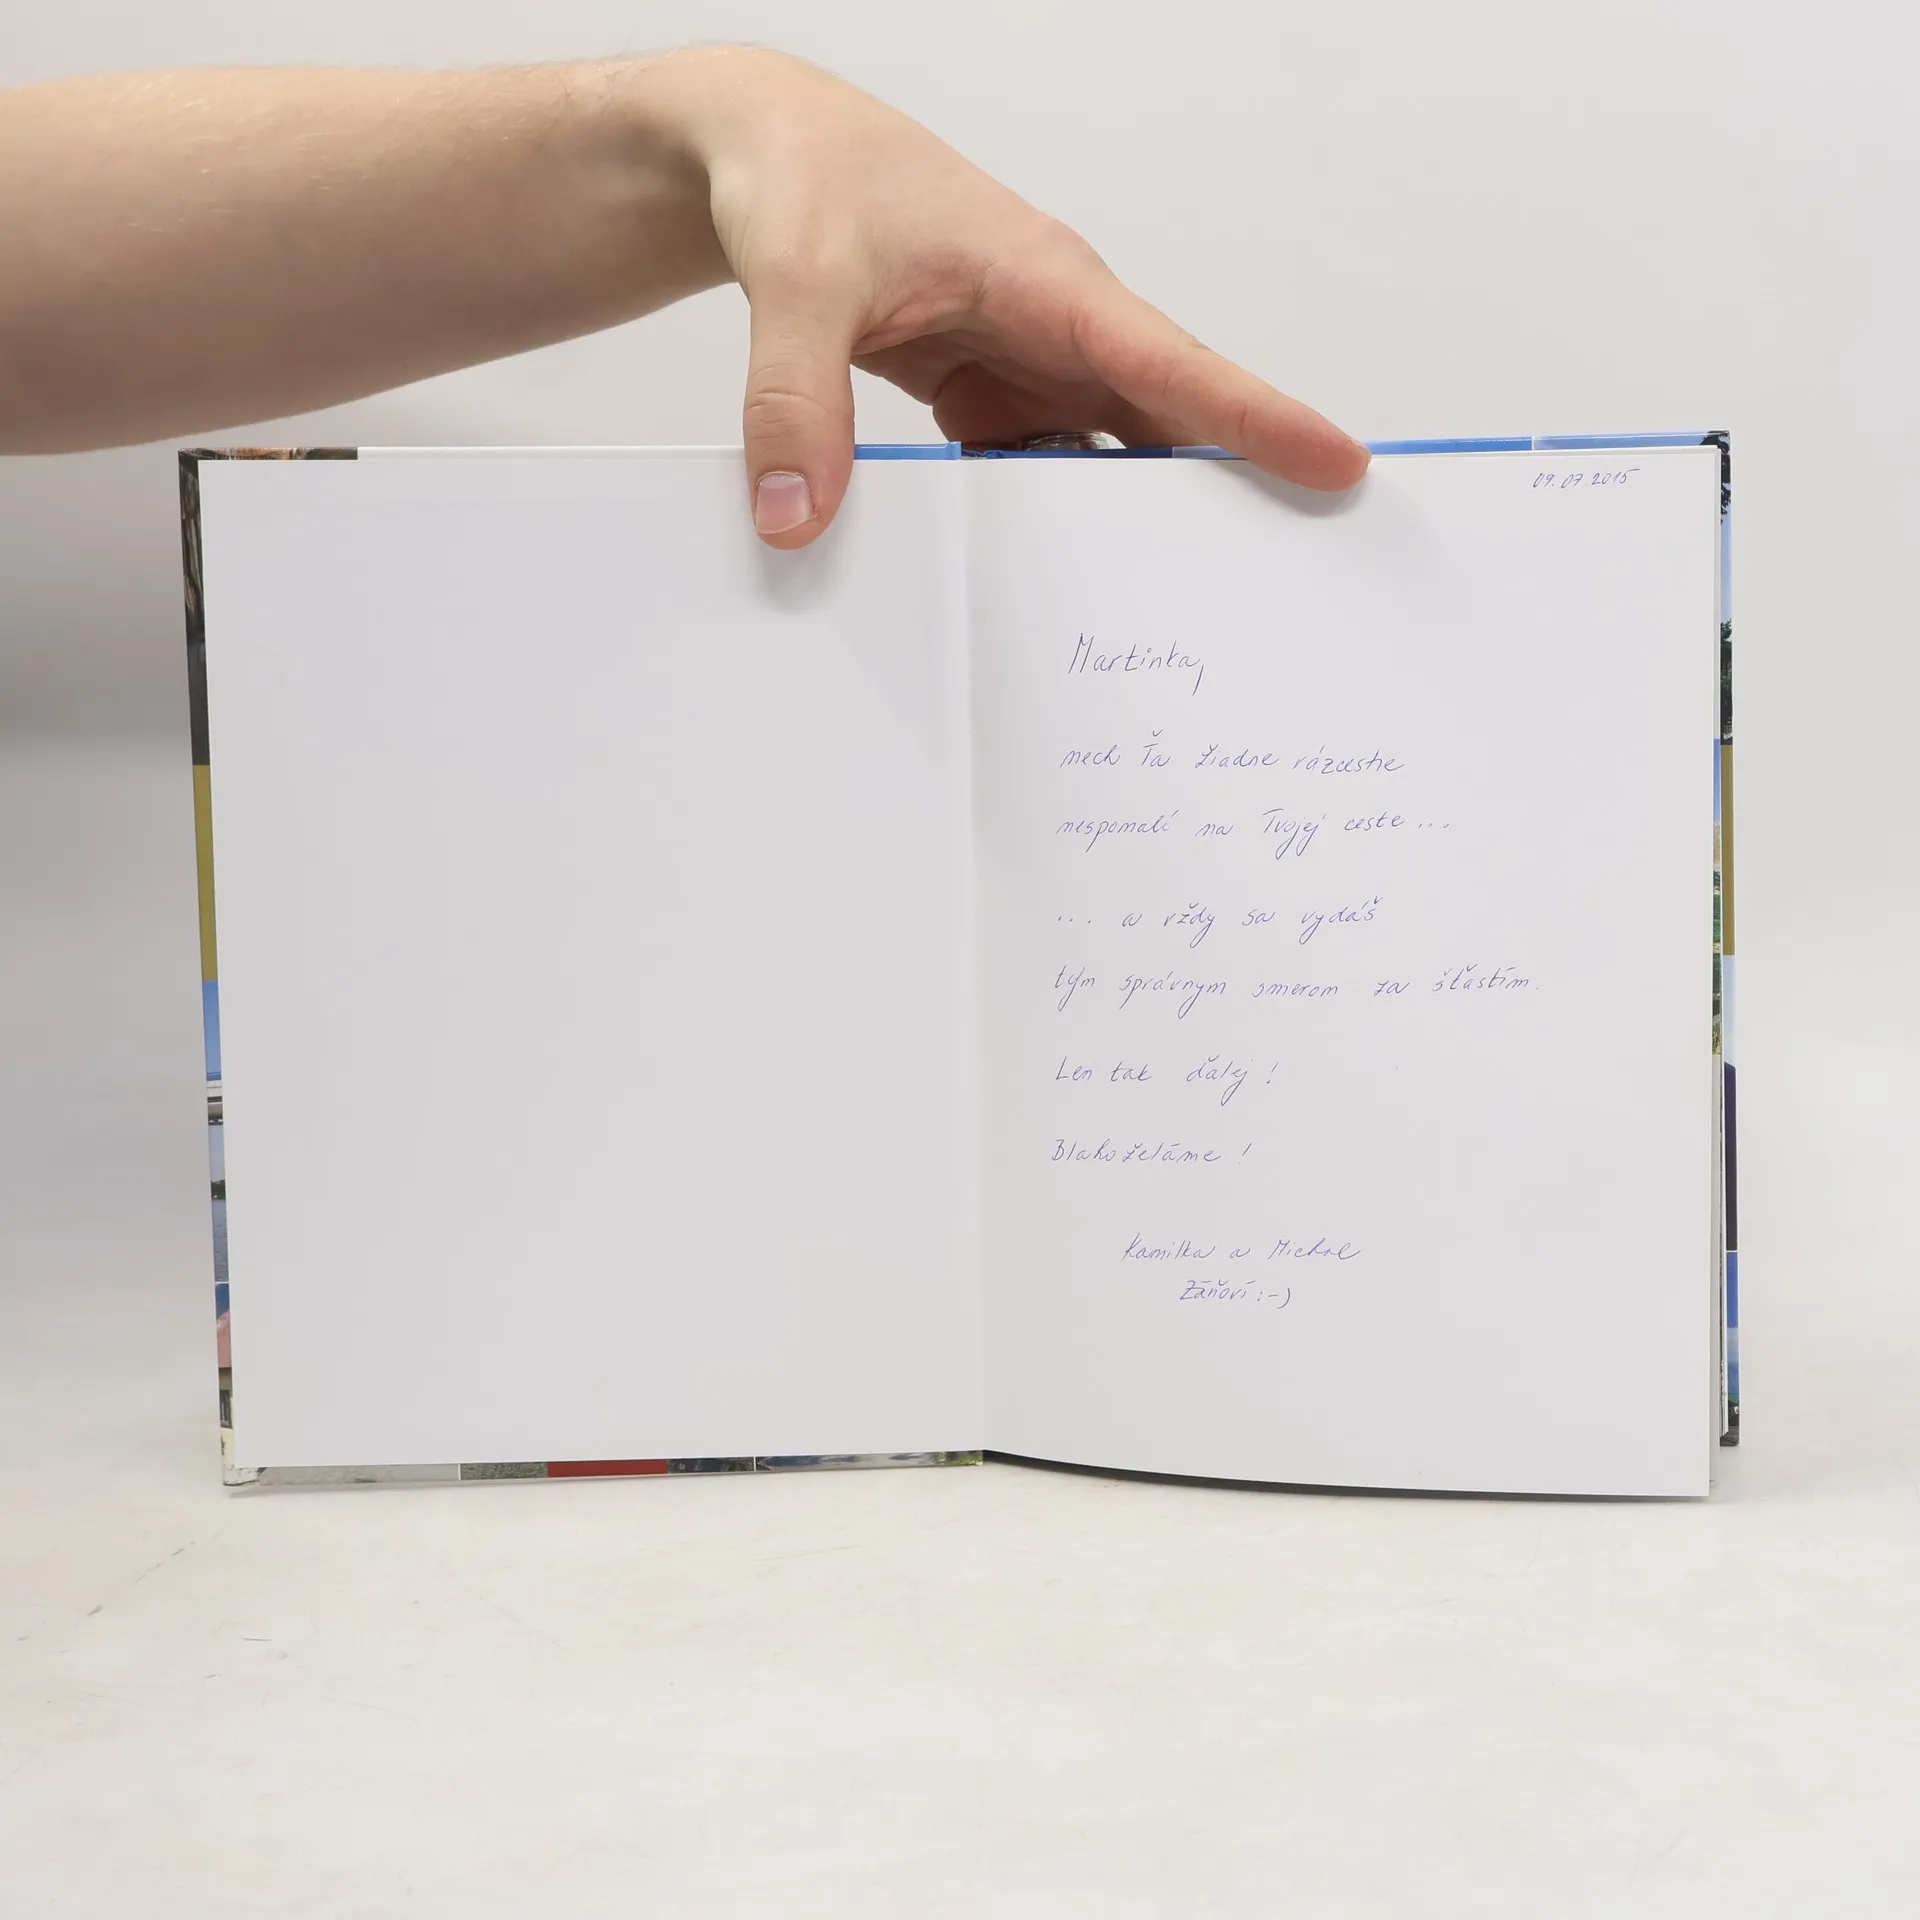 09.07.2015
Martinka,
nech Ťa žiadne rázcestie
nespomalí na Tvojej ceste...
... a vždy sa vydáš
tým správnym smerom za šťastím.
Len tak ďalej!
Blahoželáme!
Kamilka a Michal
Záňovi :-)